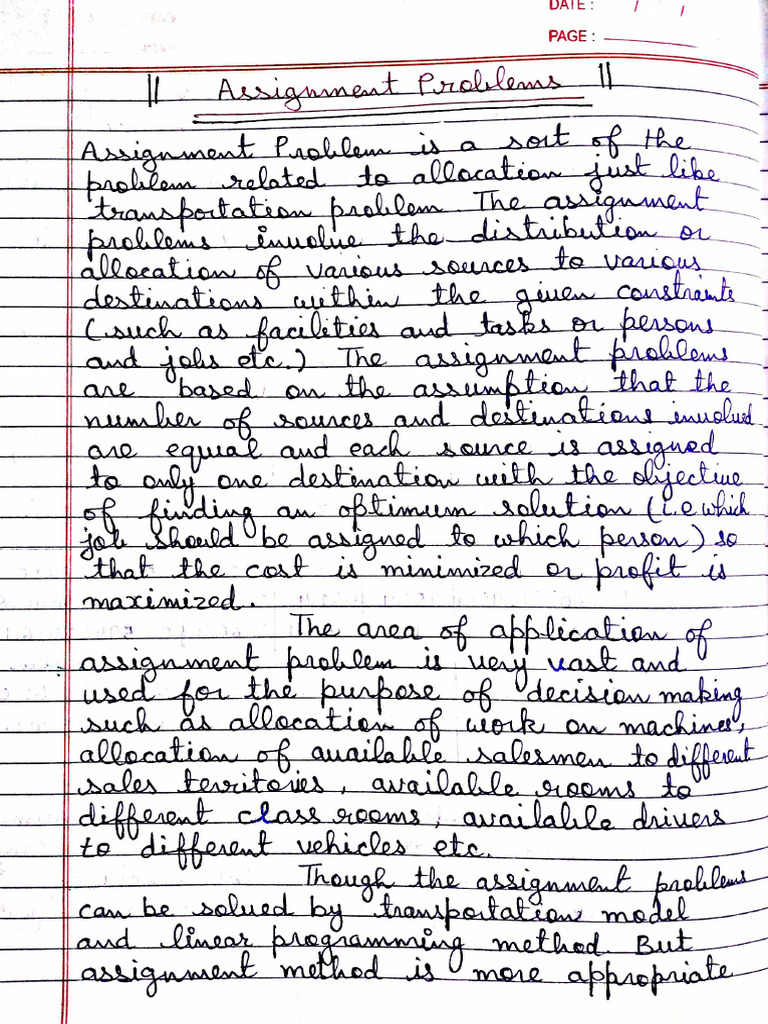 DATE : / /
PAGE :
|| Assignment Problems ||
Assignment Problem is a sort of the
problem related to allocation just like
transportation problem. The assignment
problems involve the distribution or
allocation of various sources to various
destinations within the given constraints
(such as facilities and tasks or persons
and jobs etc.) The assignment problems
are based on the assumption that the
number of sources and destinations involved
are equal and each source is assigned
to only one destination with the objective
of finding an optimum solution (i.e which
job should be assigned to which person) so
that the cost is minimized or profit is
maximized.
The area of application of
assignment problem is very vast and
used for the purpose of decision making
such as allocation of work on machines,
allocation of available salesmen to different
sales territories, available rooms to
different class rooms, available drivers
to different vehicles etc.
Though the assignment problems
can be solved by transportation model
and linear programming method. But
assignment method is more appropriate